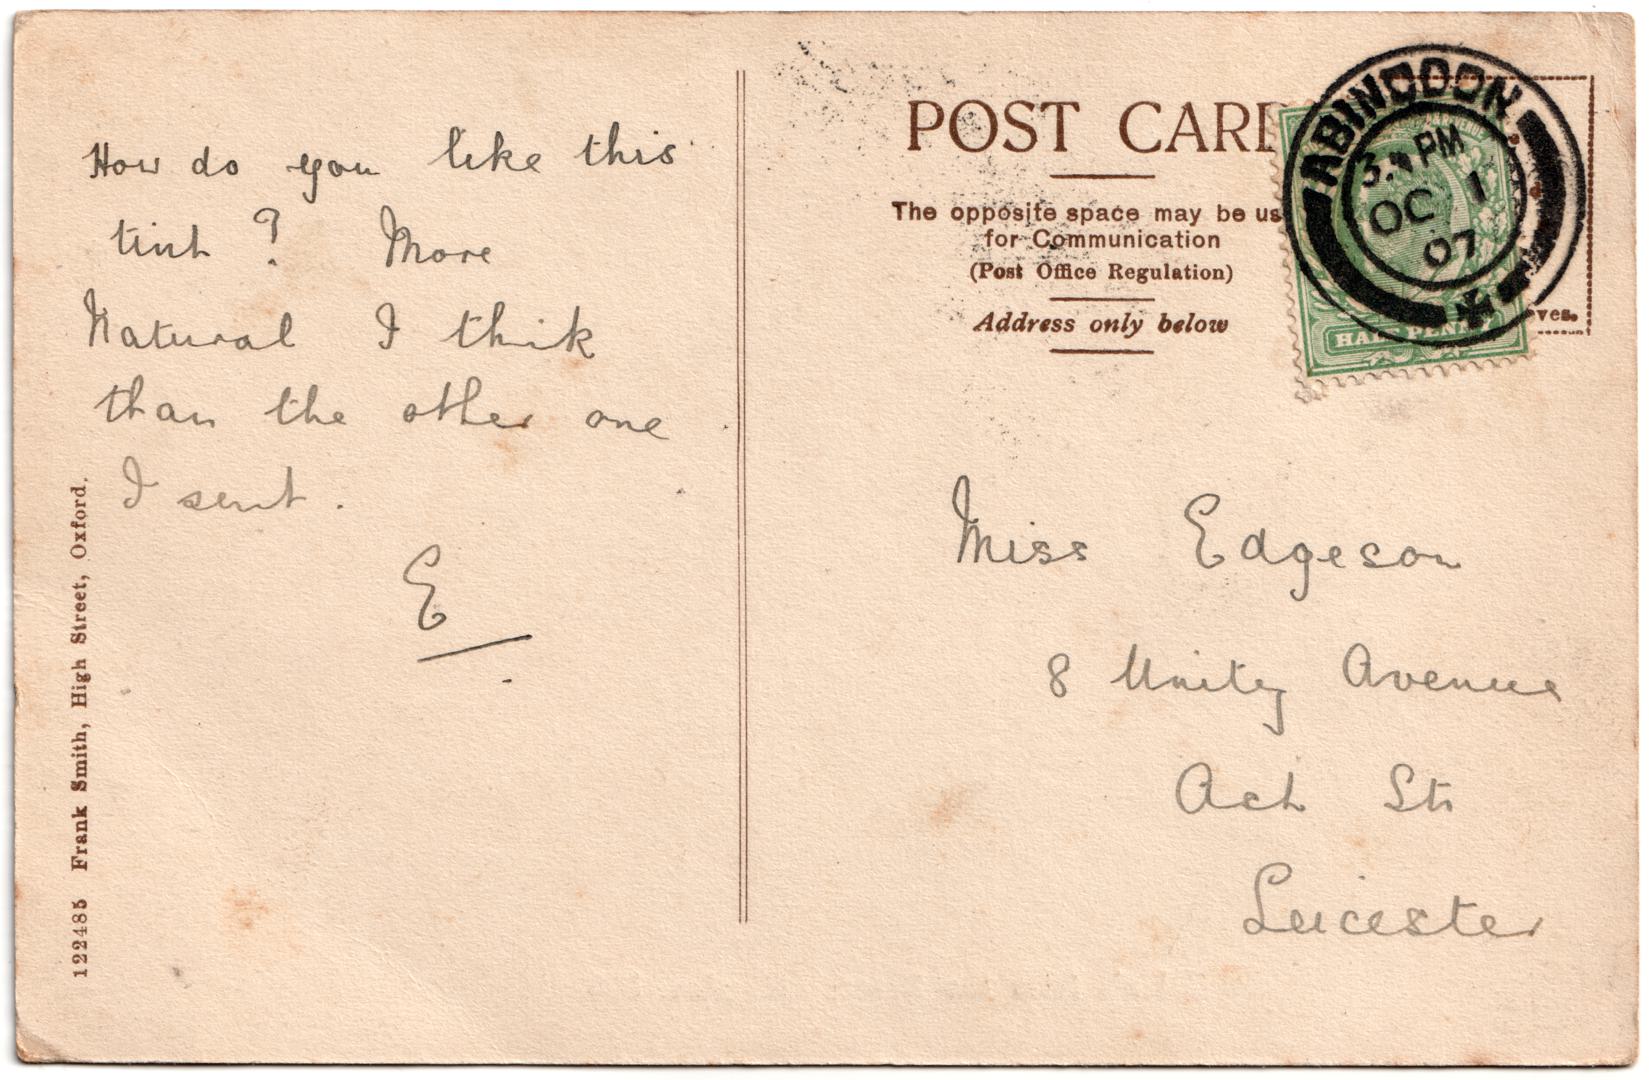 How do you like this
tint? More
Natural I think
than the other one
I sent.
E
122485 Frank Smith, High Street, Oxford.
POST CARD
The opposite space may be us
for Communication
(Post Office Regulation)
Address only below
ABINGDON
PM
OC 1
07
HALF PENNY
ves.
Miss Edgeson
8 Unity Avenue
Ash St
Leicester